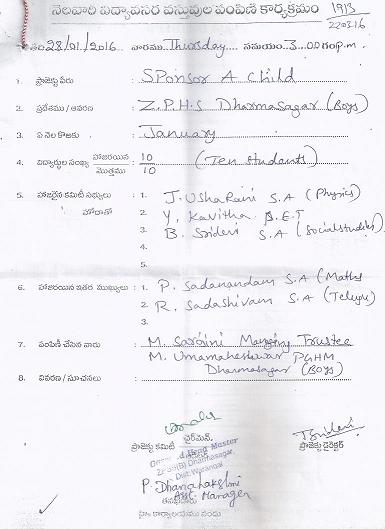 నెలవారి విద్యావసర వస్తువుల పంపిణి కార్యక్రమం 1913
2203.16
తేదిం 28/01/2016 వారము Thursday సమయం 3.00 గం p.m
1. ప్రాజెక్టు పేరు : SPonsor A Child
2. ప్రదేశము / ఆవరణ : Z.P.H.S Dharmasagar (Boys)
3. ఏ నెల కొఱకు : January
4. విద్యార్థుల సంఖ్య హాజరయిన : 10 (Ten students)
మొత్తము 10
5. హాజరైన కమిటీ సభ్యులు : 1. J. Usha Rani S.A (Physics)
హోదాతో 2. Y. Kavitha S.E.T
3. B. Sridevi S.A (Social studies)
4.
5.
6. హాజరయిన ఇతర ముఖ్యులు : 1. P. Sadanandam S.A (Maths
2. R. Sadashivam S.A (Telugu)
3.
7. పంపిణి చేసిన వారు : M. Sarojini Managing Trustee
M. Umamaheshwar PGHM
Dharmasagar (Boys)
8. వివరణ / సూచనలు :
ప్రాజెక్టు కమిటీ చైర్‌మెన్. ప్రాజెక్టు డైరెక్టర్
Head Master
(B) Dharmasagar,
Dist: Warangal
P. Dhanalakshmi
Asst. Manager